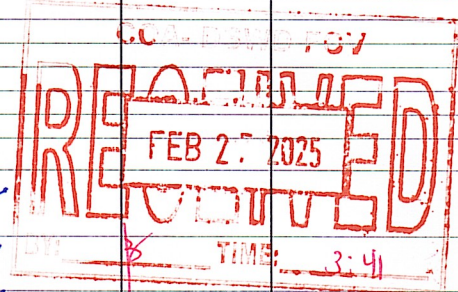 RECEIVED
FEB 2 2025
BY: TIME: 3:41